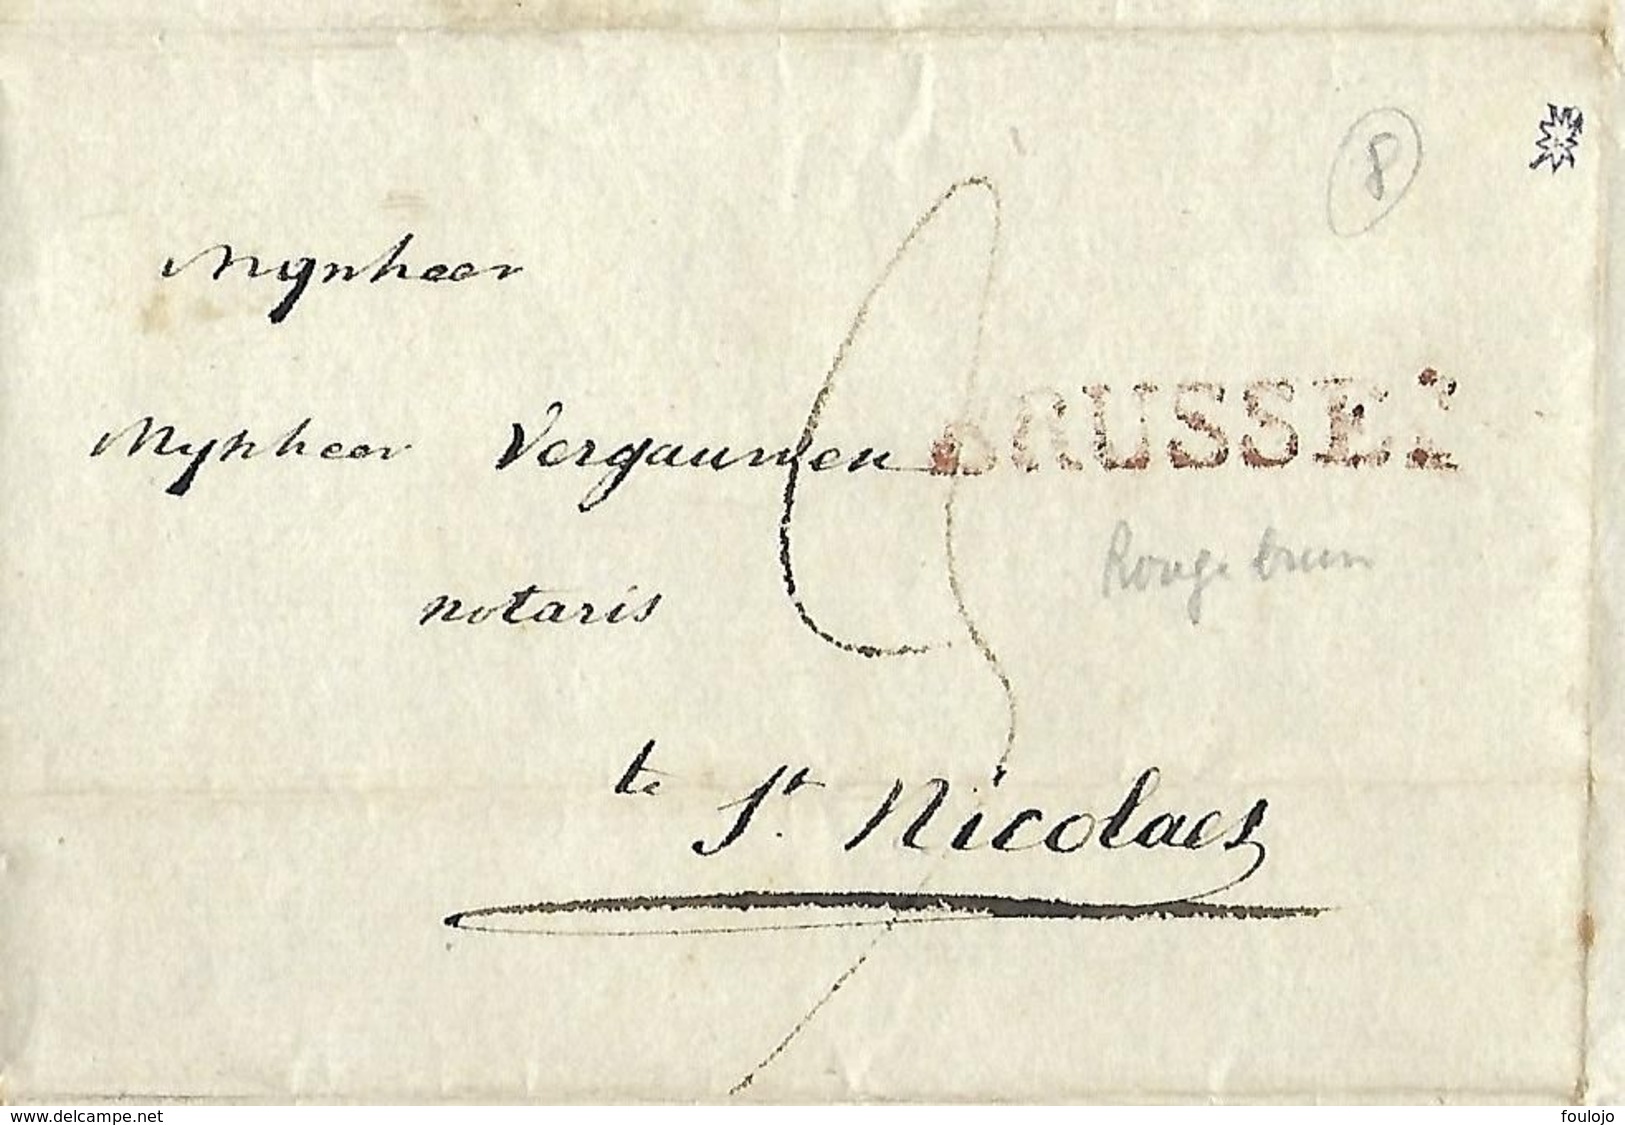 8
Mynheer
BRUSSEL
Mynheer Vergauwen
Rouge brun
notaris
te St. Nicolaes
www.delcampe.net
foulojo